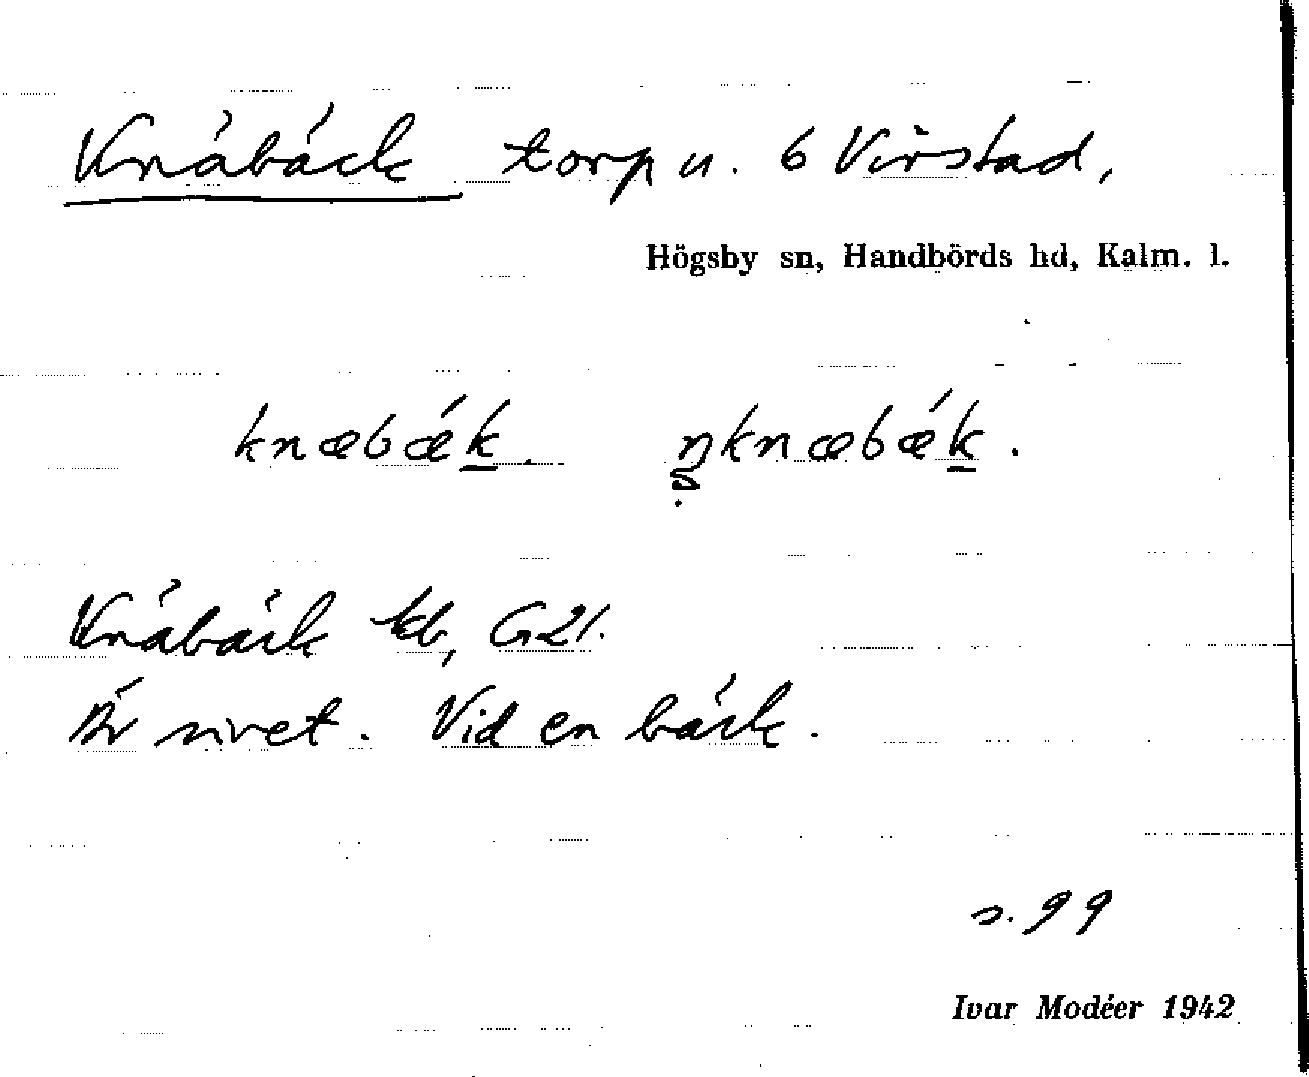 Knäbäck torp u. 6 Virstad,
Högsby sn, Handbörds hd, Kalm. l.
knæbǽk. ŋknæbǽk.
Knäbäck kb, G21.
Är rivet. Vid en bäck.
s. 99
Ivar Modéer 1942